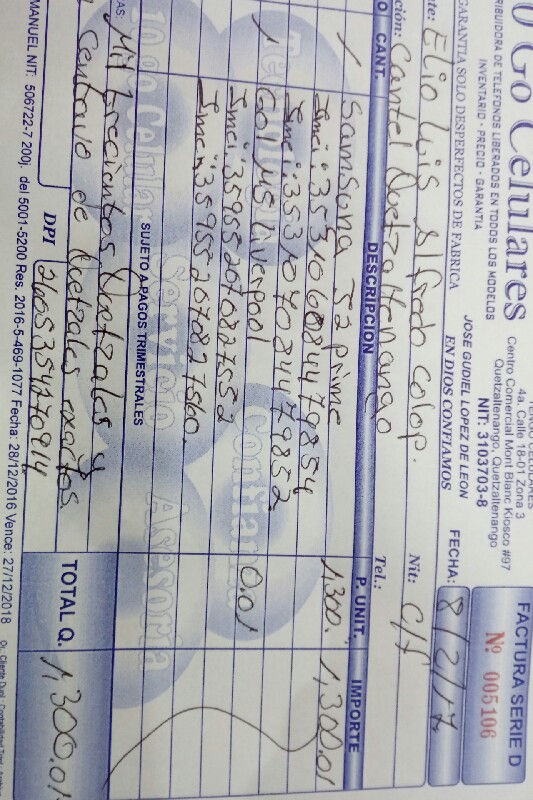 O Go Celulares
FACTURA SERIE D
Nº 005106
RIBUIDORA DE TELEFONOS LIBERADOS EN TODOS LOS MODELOS
INVENTARIO - PRECIO - GARANTIA
GARANTIA SOLO DESPERFECTOS DE FABRICA
4a. Calle 18-01 Zona 3
Centro Comercial Mont Blanc Kiosco #97
Quetzaltenango, Quetzaltenango
NIT: 3103703-8
JOSE GUDIEL LOPEZ DE LEON
EN DIOS CONFIAMOS
FECHA: 8/2/17
te: Elio Luis Alfredo Colop. Nit: C/f
ción: Cantel Quetzaltenango Tel.:
O CANT. DESCRIPCION P. UNIT. IMPORTE
1 Samsung J2 prime 1,300. 1,300.01
Imei: 353106084479854
Imei: 353107084479852
1 Gol M5 Liverpool 0.01
Imei: 359552070827552
Imei: 359552070827560.
SUJETO A PAGOS TRIMESTRALES
AS: Mil trecientos Quetzales y
Centavo de Quetzales exactos.
TOTAL Q. 1,300.01
DPI 2605354270914
MANUEL NIT: 506722-7 200j. del 5001-5200 Res. 2016-5-469-1077 Fecha: 28/12/2016 Vence: 27/12/2018